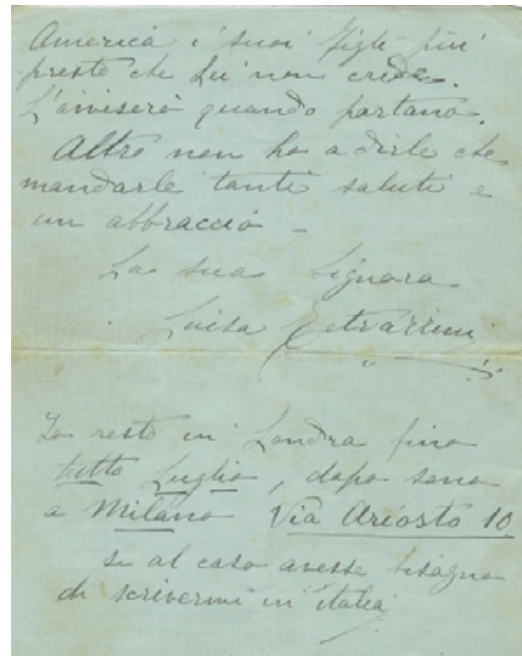 America i suoi figli più
presto che Lei non crede.
L'aviserò quando partano.
Altro non ho a dirle che
mandarle tanti saluti e
un abbraccio –
La sua Signora
Luisa Tetrazzini
Io resto in Londra fino
tutto Luglio, dopo sono
a Milano Via Ariosto 10
se al caso avesse bisogno
di scrivermi in italia